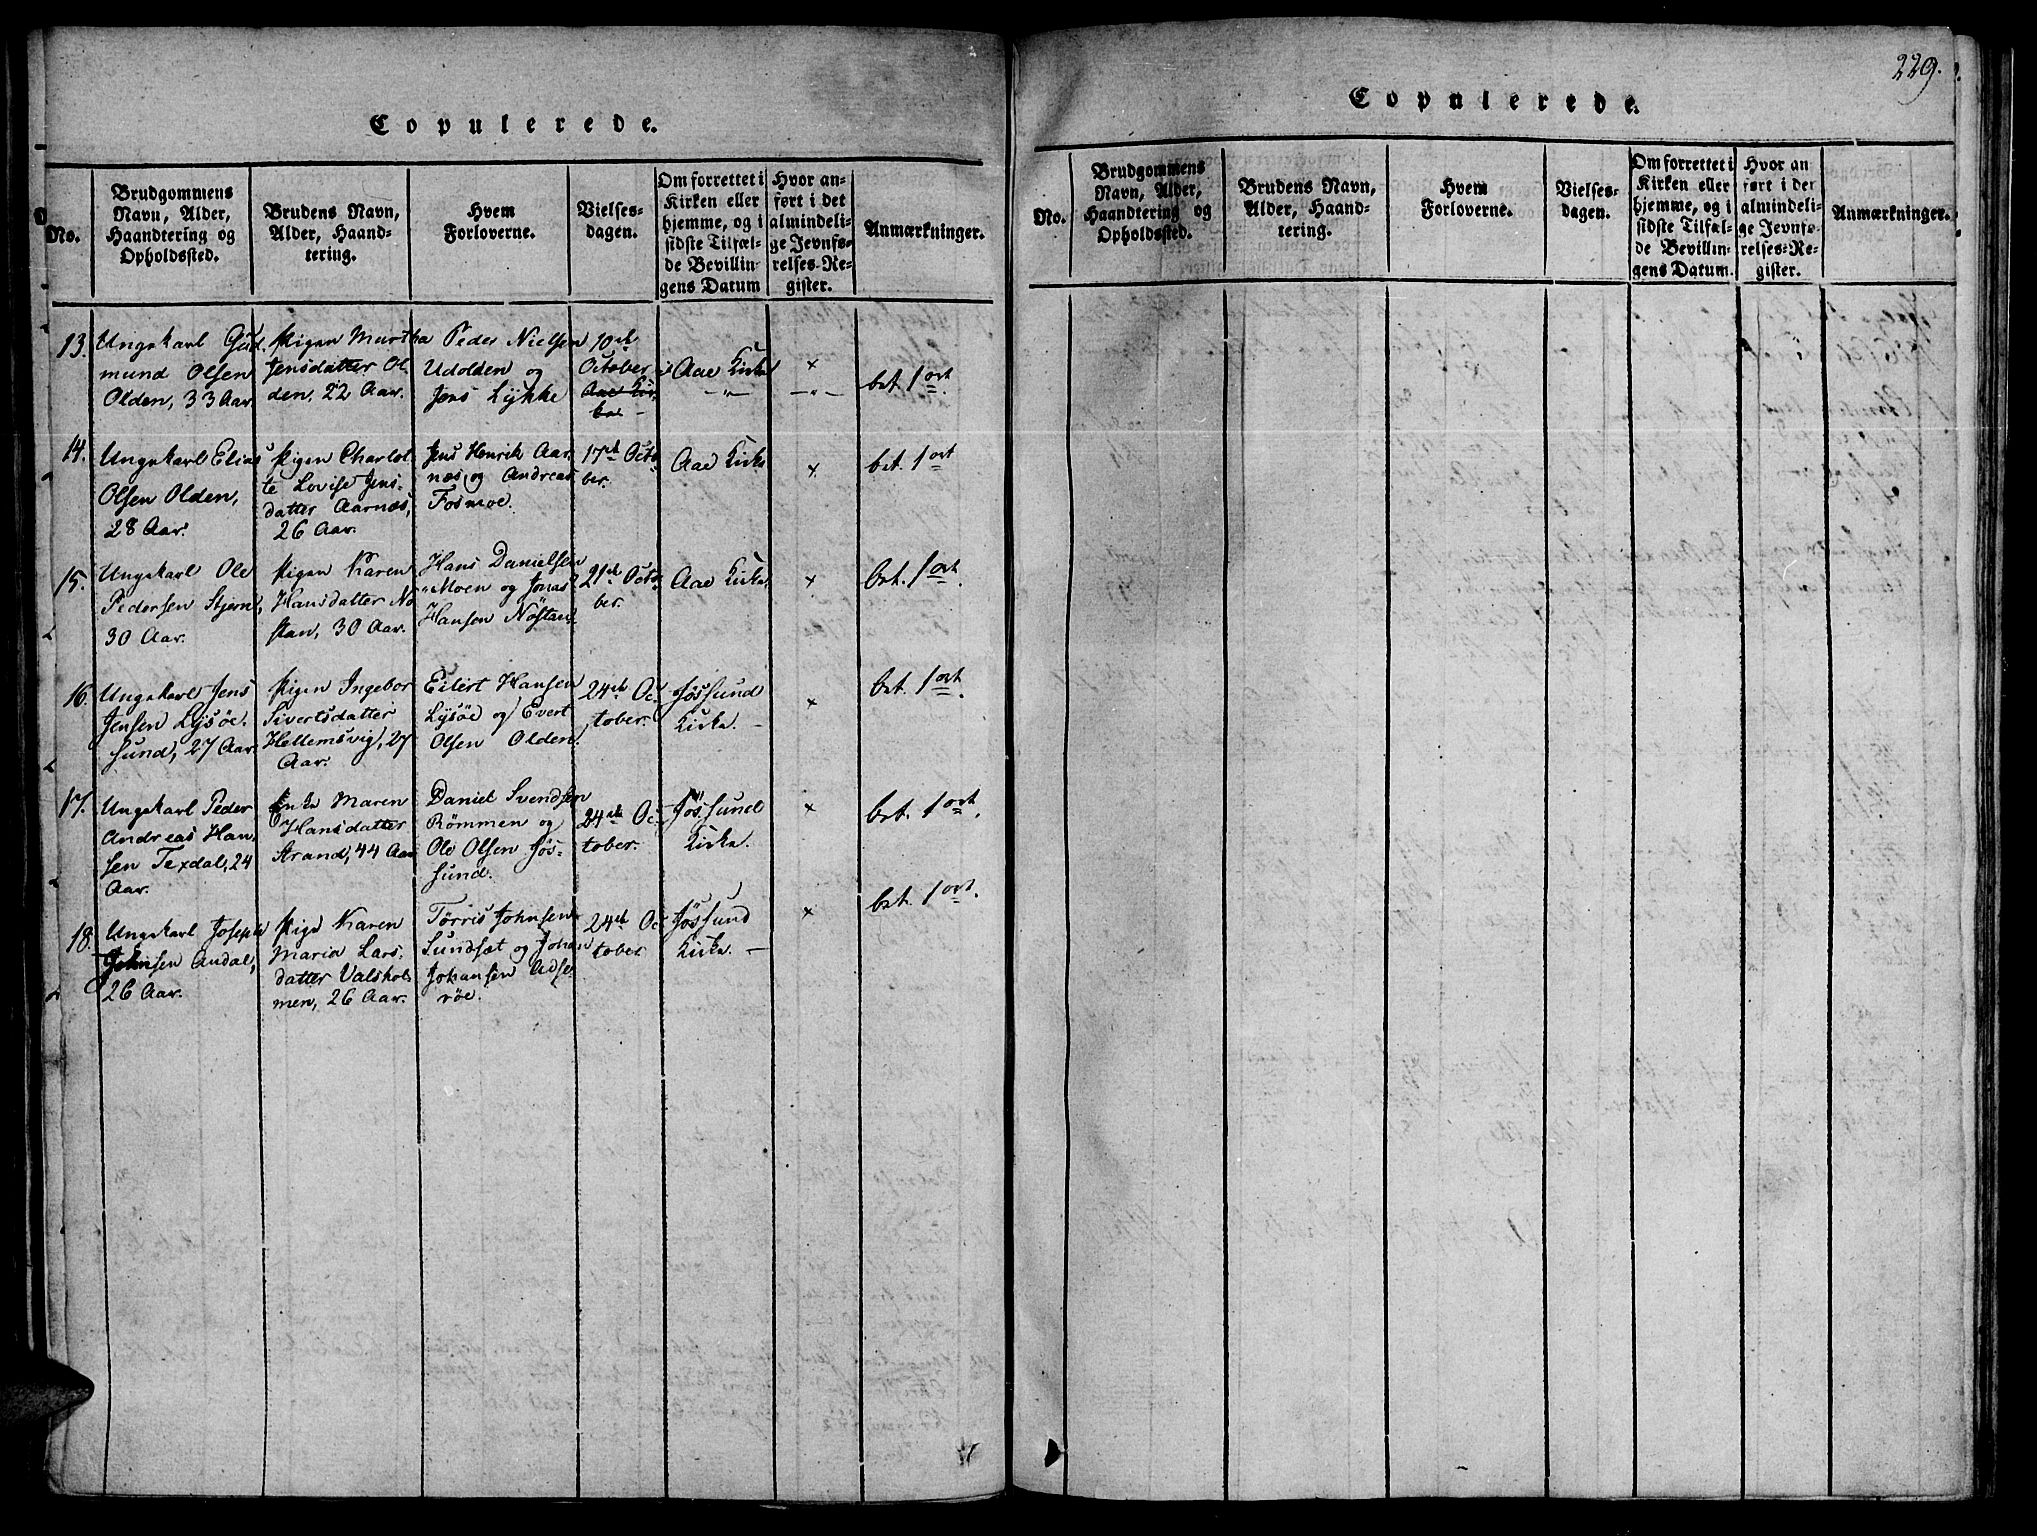 Copulerede.
No.
Brudgommens
Navn, Alder,
Haandtering og
Opholdssted.
Brudens Navn,
Alder, Haand-
tering.
Hvem
Forloverne.
Vielses-
dagen.
Om forrettet i
Kirken eller
hjemme, og i
sidste Tilfæl-
de Bevillin-
gens Datum
Hvor an-
ført i det
almindeli-
ge Jevnfø-
relses-Re-
gister.
Anmærkninger.
13.
Ungekarl Gud-
mund Olsen
Olden, 33 Aar
Pigen Martha
Jensdatter Ol-
den, 22 Aar.
Peder Nielsen
Udolden og
Jens Lykke
10de
October
Aae Kirke
—〃—
×
—〃—
bet. 1 ort.
14.
Ungekarl Elias
Olsen Olden,
28 Aar.
Pigen Charlot
te Lovise Jens-
datter Aarnæs,
26 Aar.
Jens Henrik Aar
næs og Andreas
Fosmoe.
17de Octo
ber.
Aae Kirke
×
bet. 1 ort
15.
Ungekarl Ole
Pedersen Stjern,
30 Aar.
Pigen Karen
Hansdatter Nö
stan, 30 Aar.
Hans Danielsen
Moen og Jonas
Hansen Nöstan
21de Octo
ber.
Aae Kirke
×
bet. 1 ort.
16.
Ungekarl Jens
Jensen Lysøe-
sund, 27 Aar.
Pigen Ingebor
Sivertsdatter
Hellemsvig, 27
Aar.
Eilert Hansen
Lysöe og Evert
Olsen Olden.
24de Oc
tober.
Jössund
Kirke. —
×
bet. 1 ort.
17.
Ungekarl Peder
Andreas Han-
sen Texdal, 24
Aar.
Enke Maren
Hansdatter
Strand, 44 Aar
Daniel Svendsen
Römmen og
Ole Olsen Jös-
sund.
24de Oc-
tober.
Jössund
Kirke.
×
bet. 1 ort.
18.
Ungekarl Joseph
Johnsen Andal,
26 Aar.
Pige Karen
Maria Lars-
datter Valshol-
men, 26 Aar.
Tørris Johnsen
Sundsæt og Johan
Johansen Adse-
röe.
24de Oc
tober.
Jössund
Kirke. —
×
bet. 1 ort.
229.
Copulerede.
No.
Brudgommens
Navn, Alder,
Haandtering og
Opholdssted.
Brudens Navn,
Alder, Haand-
tering.
Hvem
Forloverne.
Vielses-
dagen.
Om forrettet i
Kirken eller
hjemme, og i
sidste Tilfæl-
de Bevillin-
gens Datum.
Hvor an
ført i der
almindeli-
ge Jevnfø-
relses-Re-
gister.
Anmærkninger.